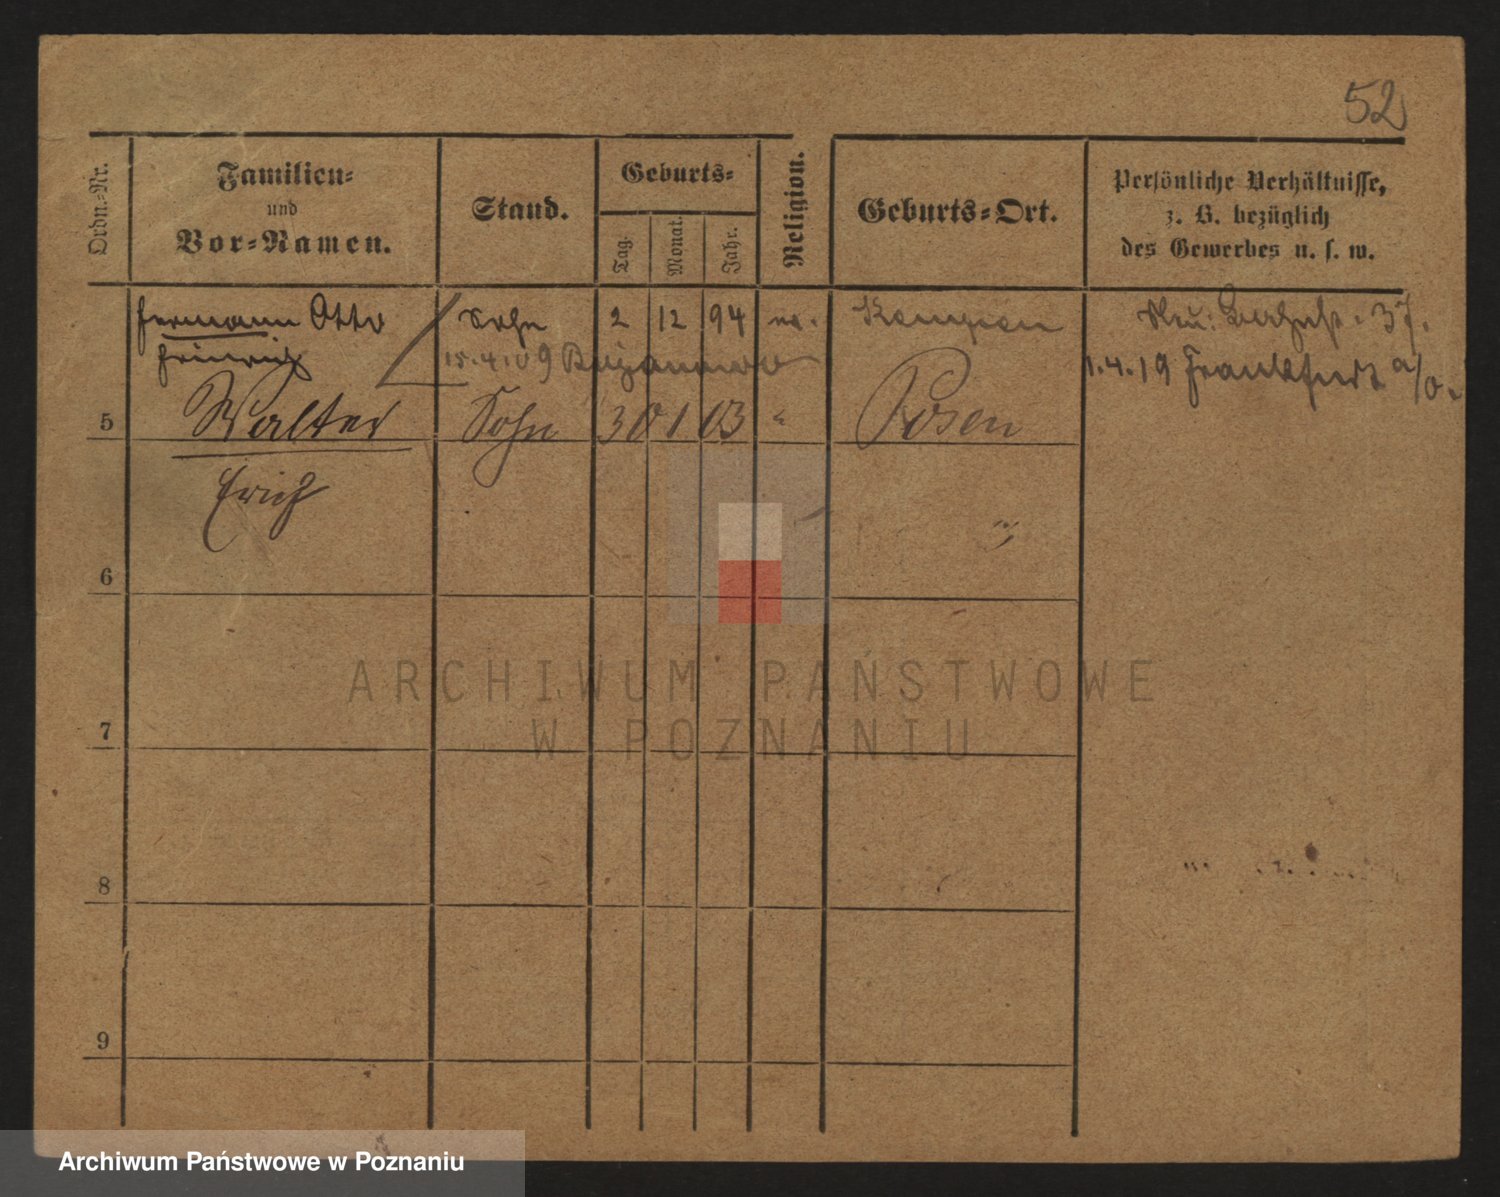 52
Ordn.-Nr.
Familien-
und
Vor-Namen.
Stand.
Geburts-
Tag.
Monat.
Jahr.
Religion.
Geburts-Ort.
Persönliche Verhältnisse,
z. B. bezüglich
des Gewerbes u. s. w.
Hermann Otto Sohn 2 12 94 Kempen 37.
Heinrich 15.4.09
1.4.19 Frankfurt a/O.
5 Walter Sohn 30 1 03 " Posen
Erich
6
7
8
9
ARCHIWUM PAŃSTWOWE
W POZNANIU
Archiwum Państwowe w Poznaniu